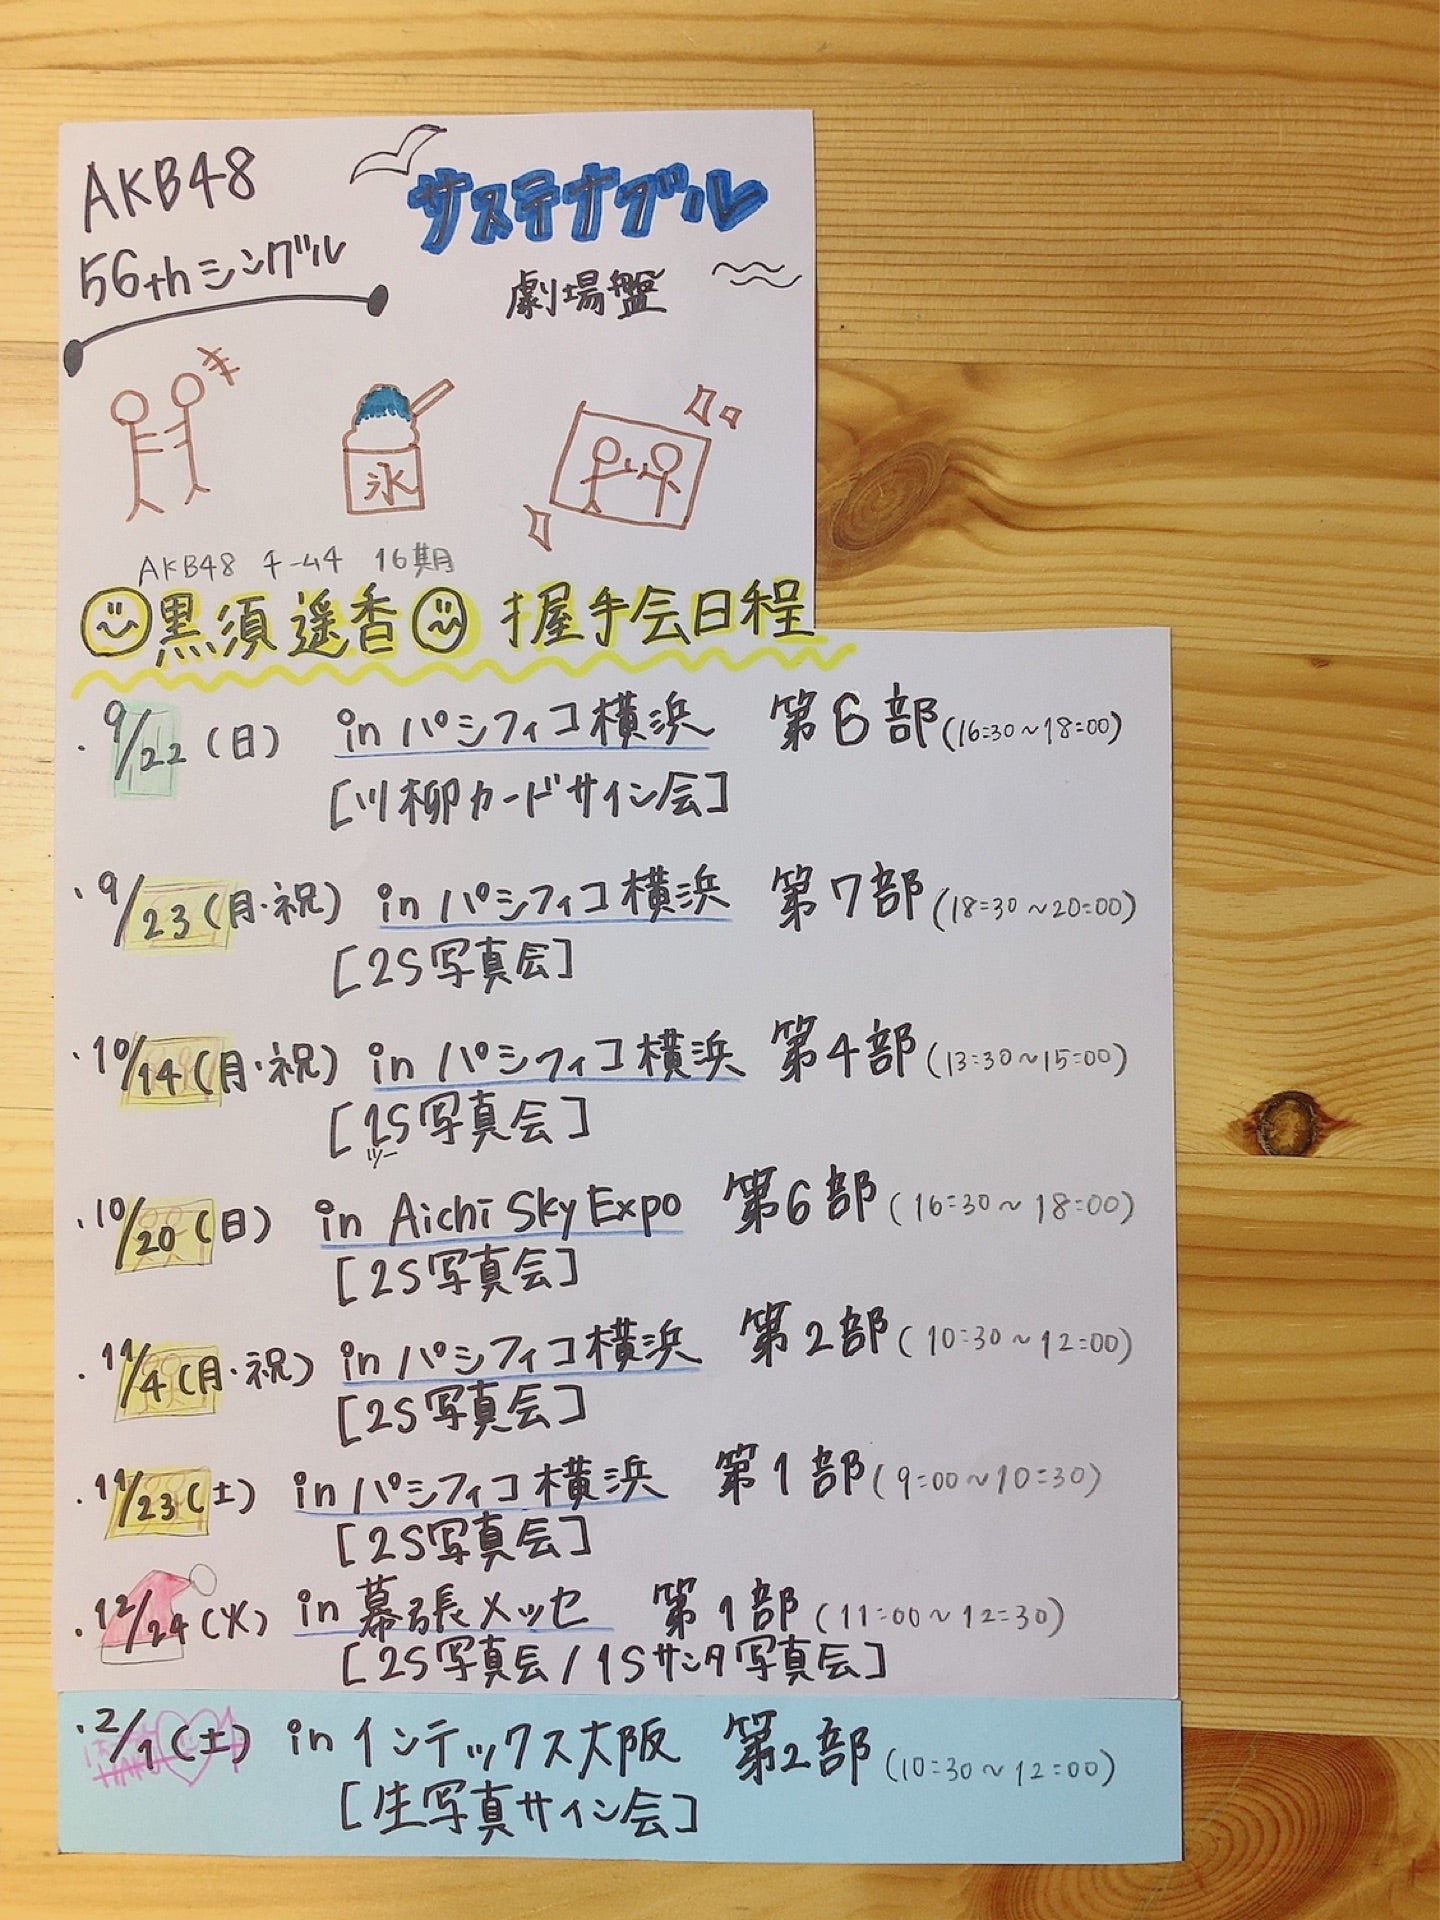 AKB48
サステナブル
56thシングル
劇場盤
氷
AKB48 チーム4 16期
黒須遥香 握手会日程
・9/22(日) in パシフィコ横浜 第6部(16:30~18:00)
[川柳カードサイン会]
・9/23(月・祝) in パシフィコ横浜 第7部(18:30~20:00)
[2S写真会]
・10/14(月・祝) in パシフィコ横浜 第4部(13:30~15:00)
[2S写真会]
ツー
・10/20(日) in Aichi Sky Expo 第6部(16:30~18:00)
[2S写真会]
・11/4(月・祝) in パシフィコ横浜 第2部(10:30~12:00)
[2S写真会]
・11/23(土) in パシフィコ横浜 第1部(9:00~10:30)
[2S写真会]
・12/24(火) in 幕張メッセ 第1部(11:00~12:30)
[2S写真会/1Sサンタ写真会]
・2/1(土) in インテックス大阪 第2部(10:30~12:00)
[生写真サイン会]